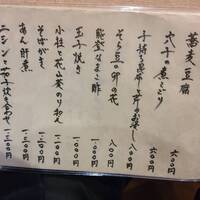 蕎麦豆腐 六〇〇円
穴子の煮こごり 六〇〇円
子持ち昆布と芹のお浸し 八〇〇円
そら豆の卯の花 八〇〇円
能登なまこ酢 一、〇〇〇円
玉子焼き 一、〇〇〇円
小柱と花山葵のり和え 一、二〇〇円
そばがき 一、二〇〇円
あん肝煮 一、三〇〇円
ニシンと茄子炊き合わせ 一、三〇〇円